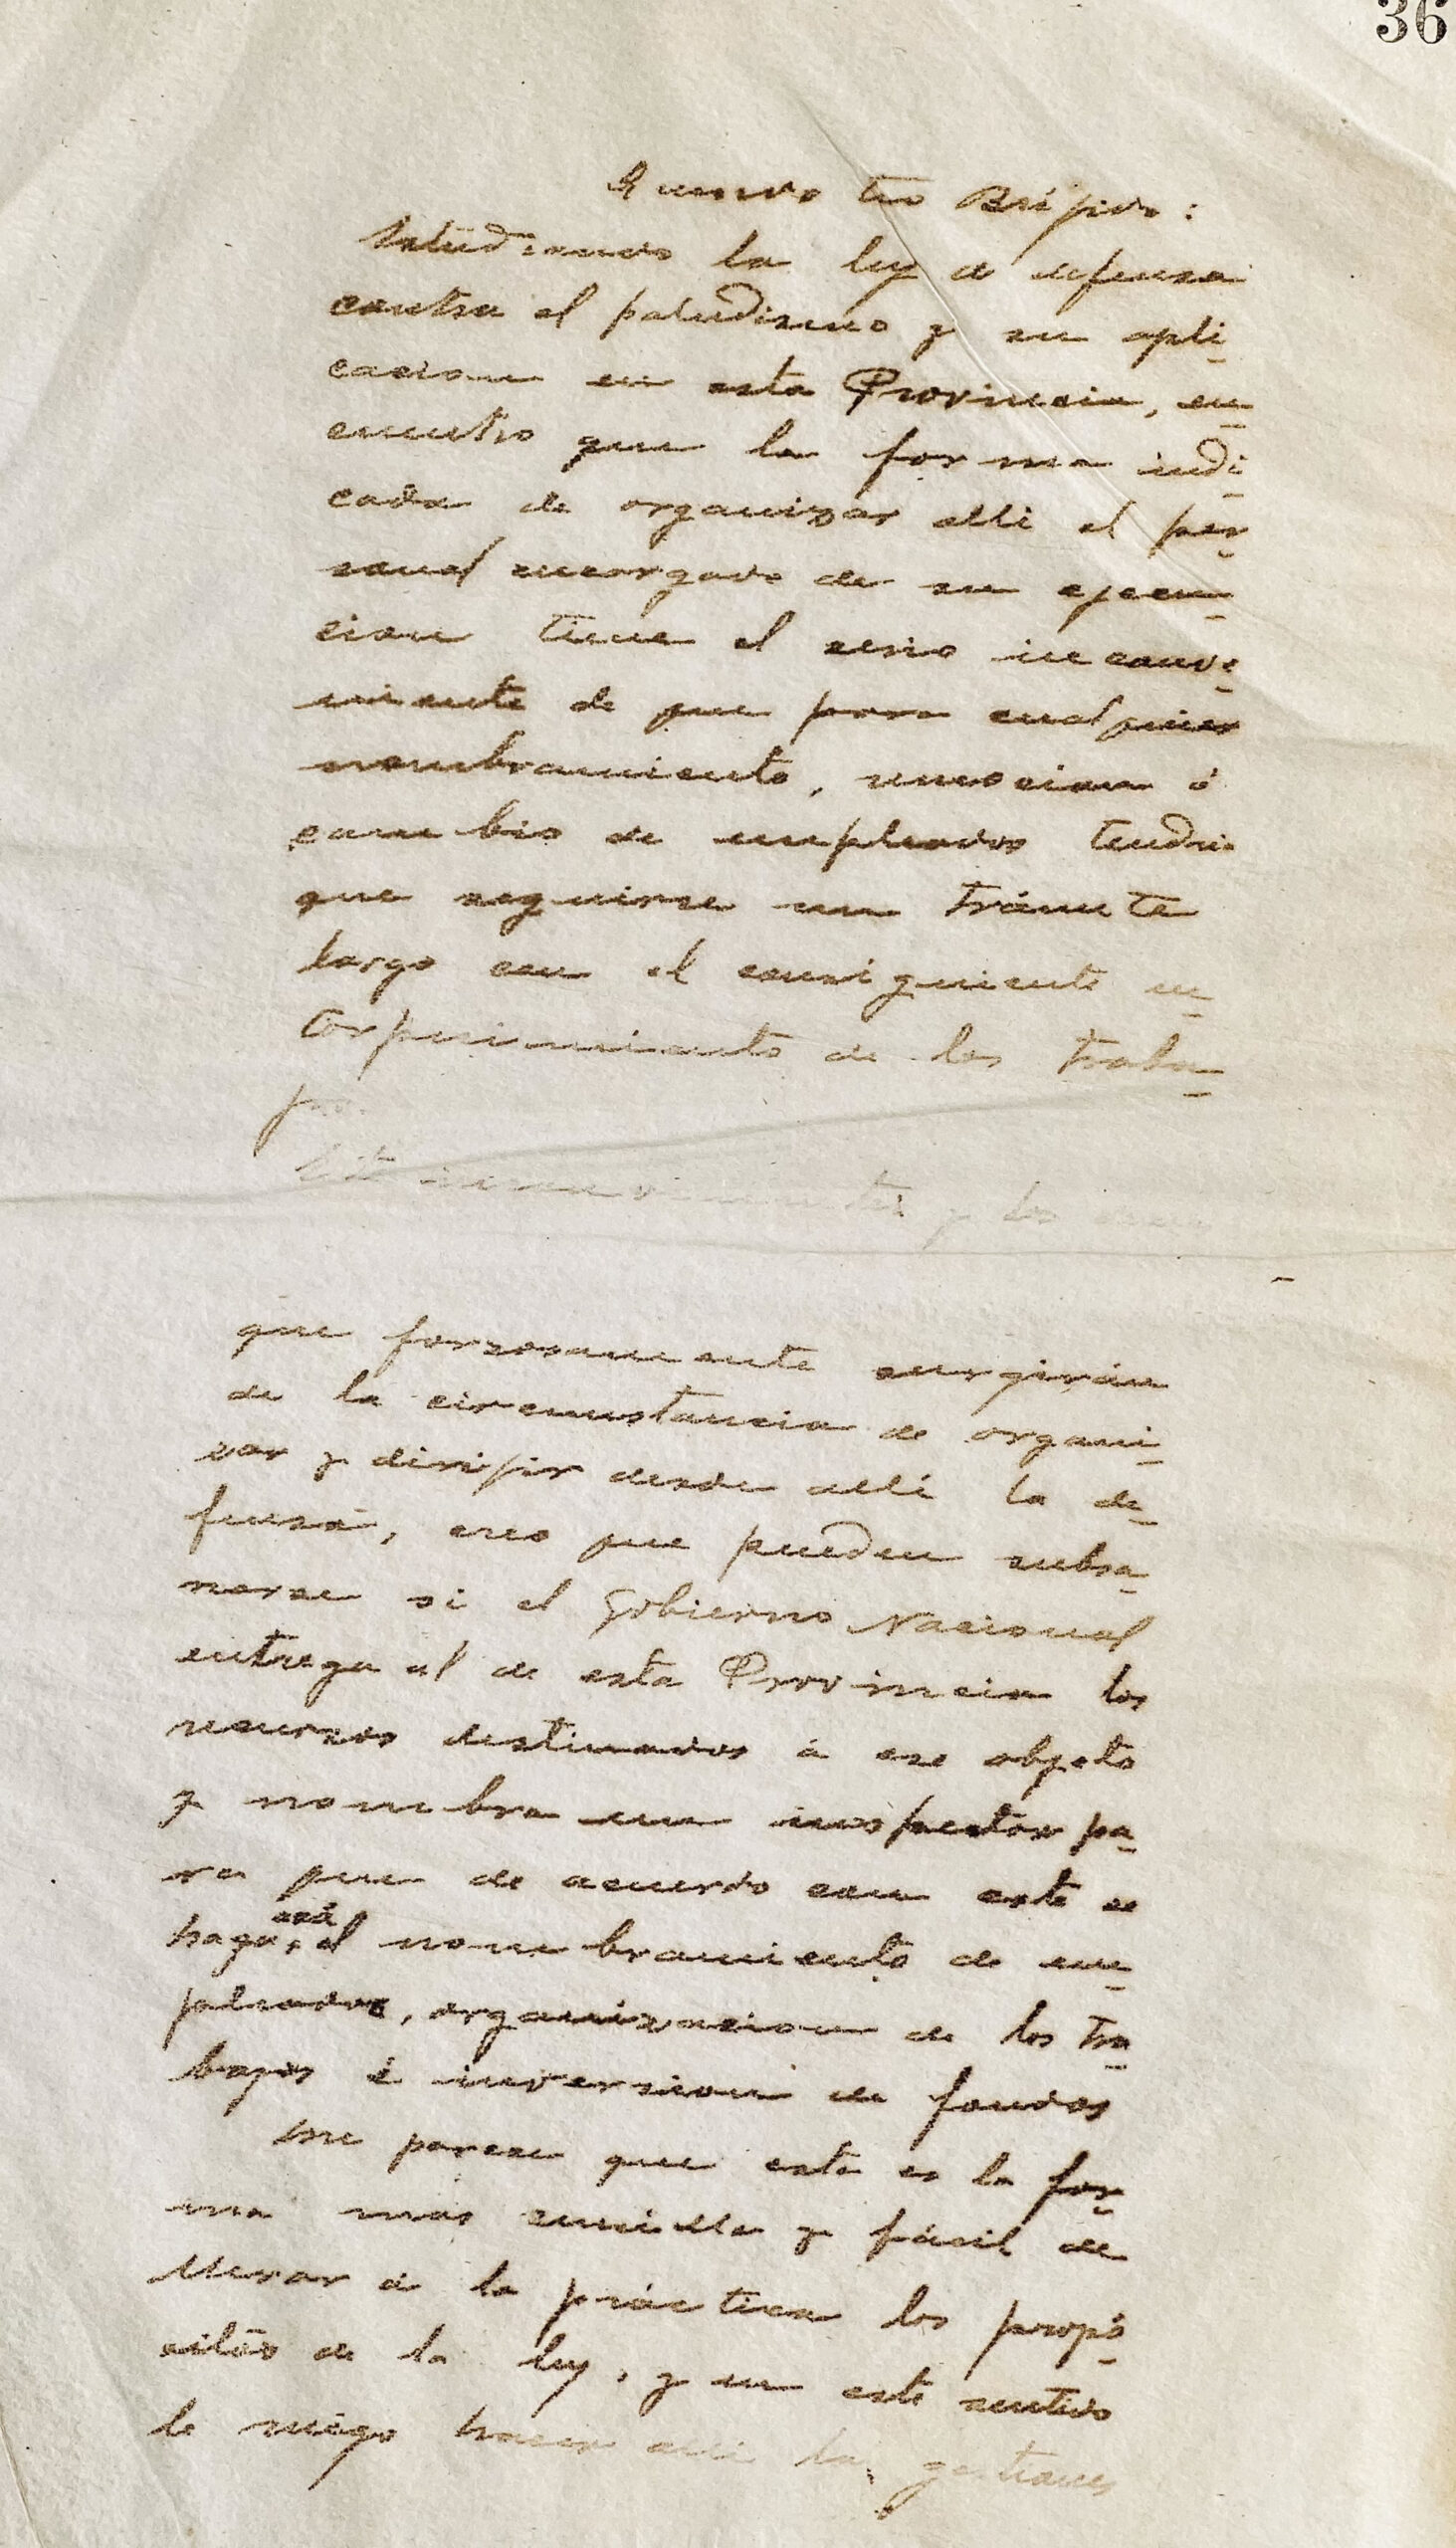 36
Querido tio Brígido:
Estudiando la ley de defensa
contra el paludismo y su apli-
cacion en esta Provincia, en-
cuentro que la forma indi-
cada de organizar allí el per-
sonal encargado de su ejecu-
cion tiene el serio inconve-
niente de que para cualquier
nombramiento, remocion ó
cambio de empleados tendria
que seguirse un trámite
largo con el consiguiente en-
torpecimiento de los traba-
jos.
Este inconveniente y los
que forzosamente surgirán
de la circunstancia de organi-
zar y dirijir desde allí la de-
fensa, creo que pueden subsa-
narse si el Gobierno Nacional
entrega al de esta Provincia los
recursos destinados á ese objeto
y nombra un inspector pa-
ra que de acuerdo con este se
haga, acá el nombramiento de em-
pleados, organizacion de los tra-
bajos é inversion de fondos
Me parece que esta es la for-
ma más sencilla y fácil de
llevar á la práctica los propó-
sitos de la ley, y en este sentido
le ruego hacer allí las gestiones